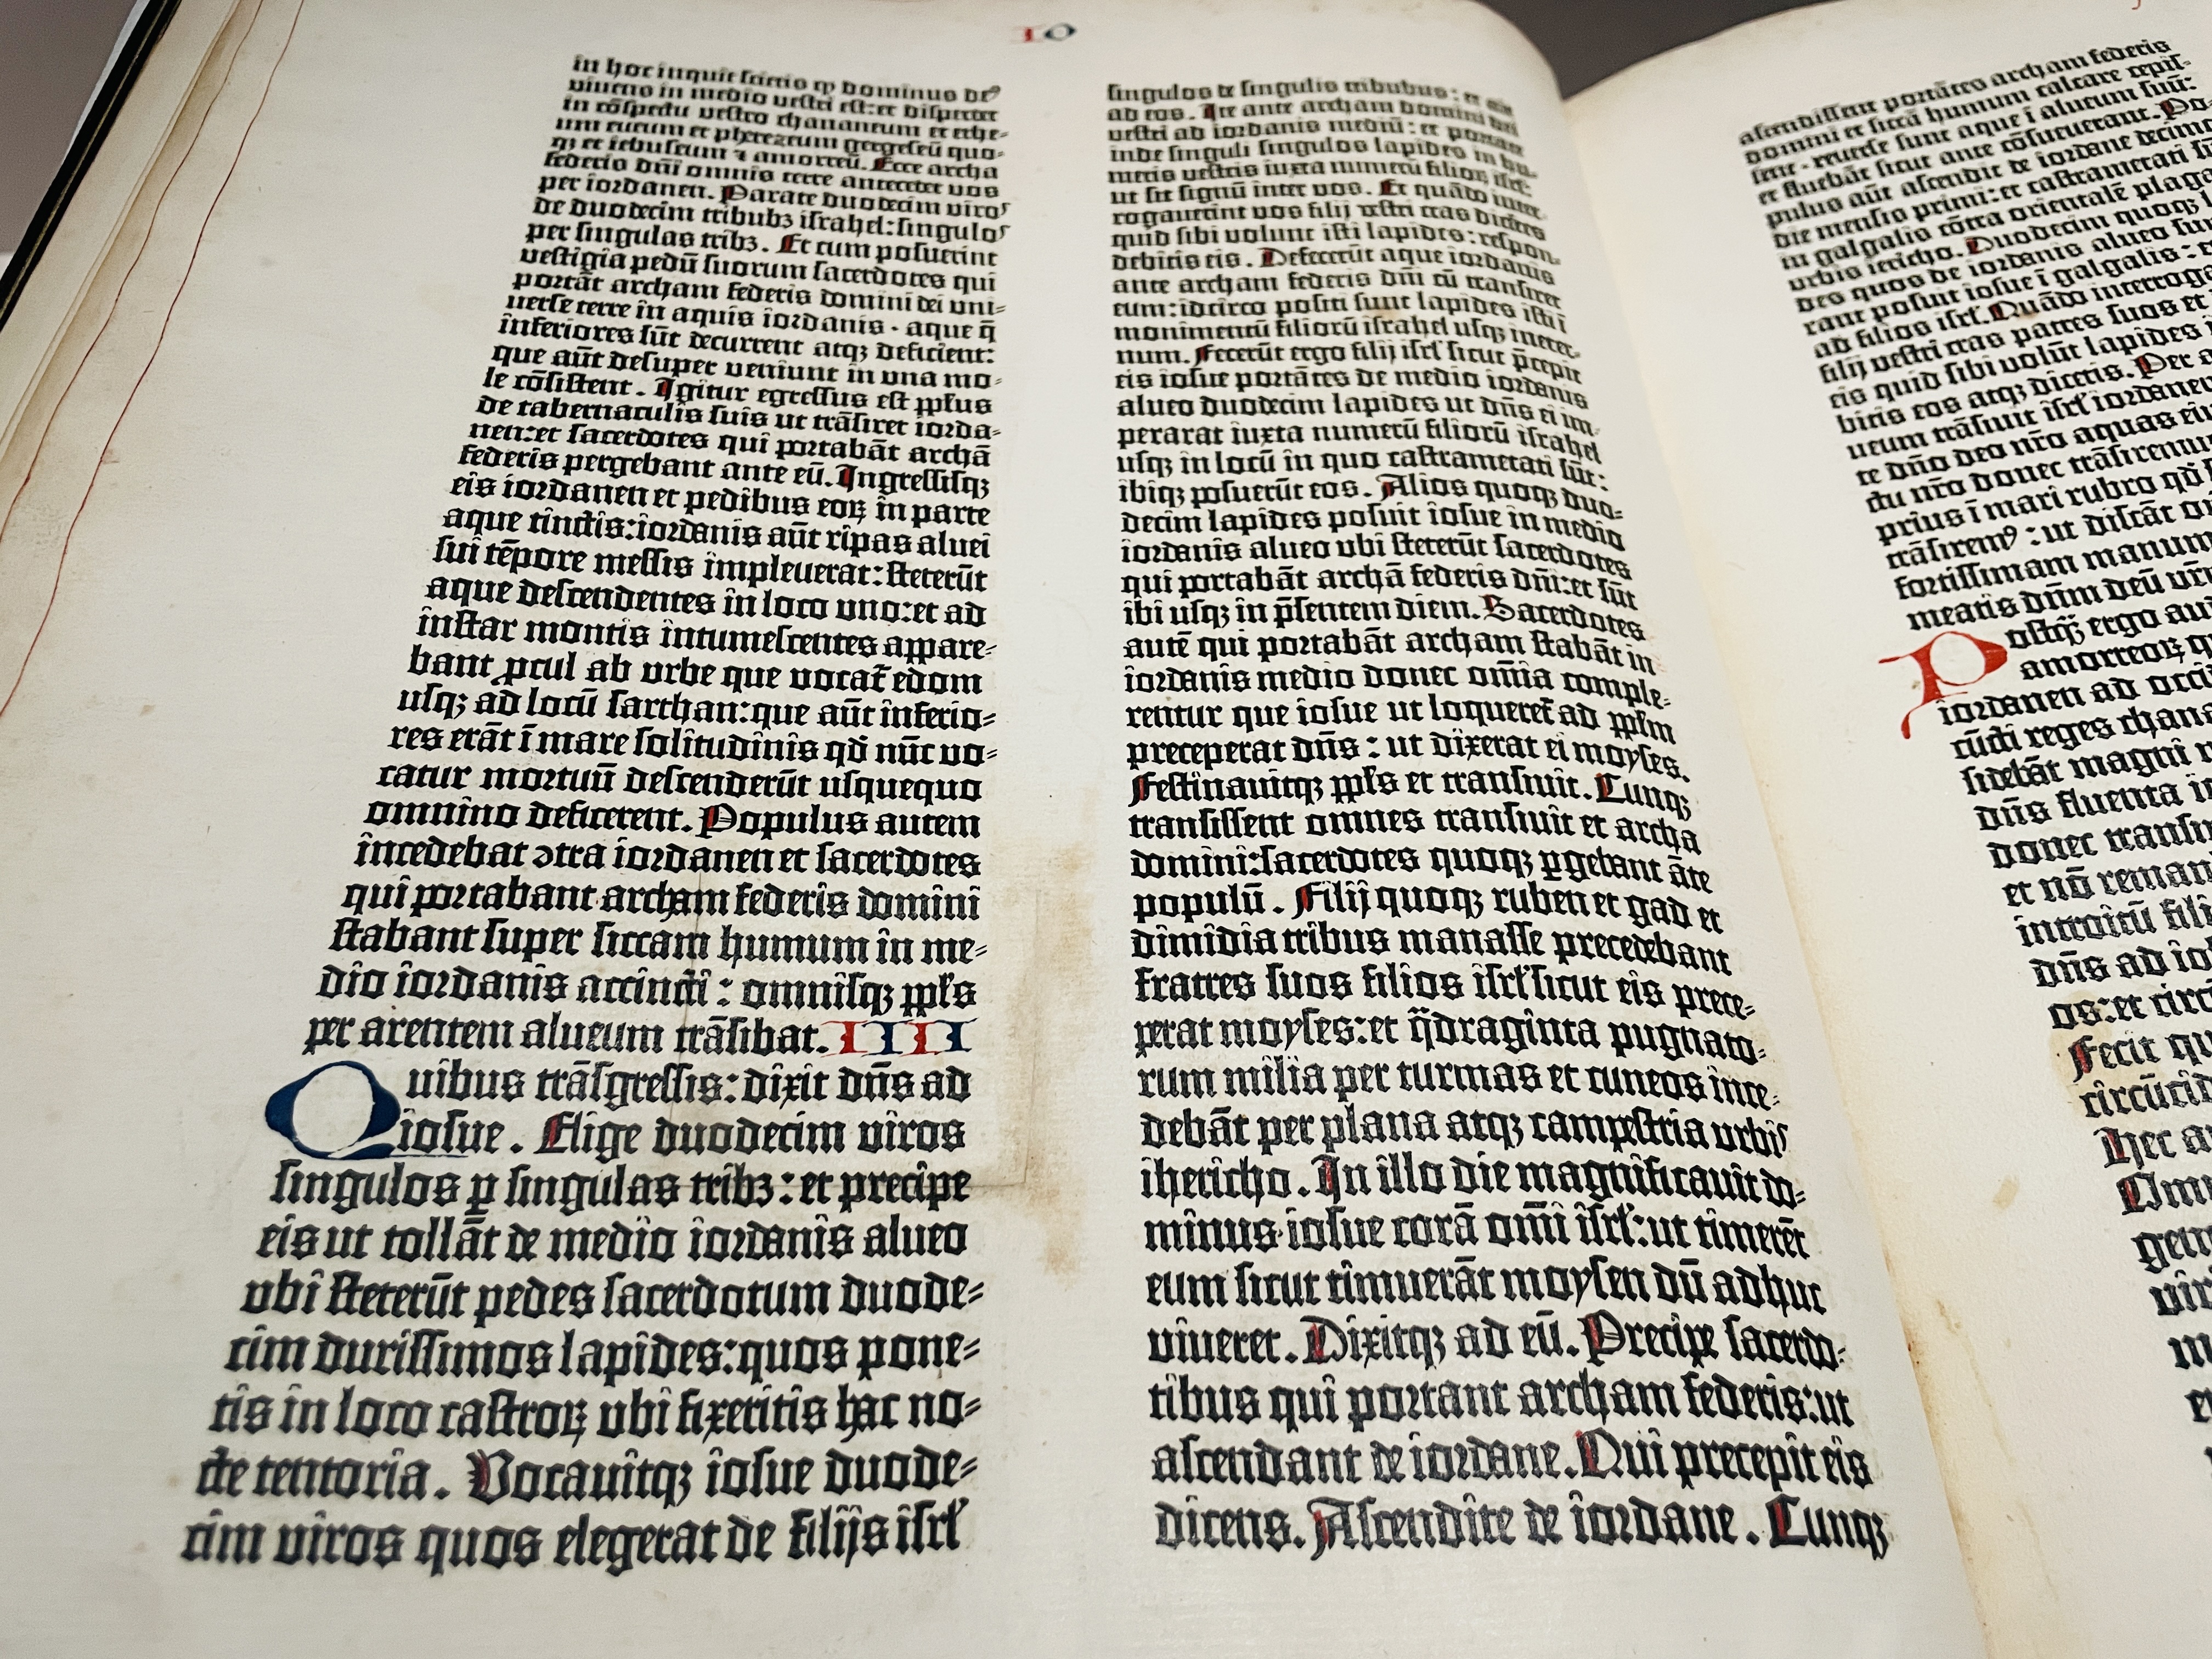 IO
in hoc inquit scietis ꝙ dominus deꝰ
viuens in medio vestri est: et disperdet
in cōspectu vestro chananeum et ethe⸗
um eueum et pherezeum gergeseū quo⸗
qꝫ et iebuseum ⁊ amorreū. Ecce archa
federis dn̄i omnis terre antecedet vos
per iordanen. Parate duodecim viros
de duodecim tribubꝫ israhel: singulos
per singulas tribꝫ. Et cum posuerint
vestigia pedū suorum sacerdotes qui
portāt archam federis domini dei vni⸗
uerse terre in aquis iordanis · aque q̄
inferiores sūt decurrent atqꝫ deficient:
que aūt desuper veniunt in vna mo⸗
le cōsistent. Igitur egressus est pp̄lus
de tabernaculis suis ut trāsiret iorda⸗
nen: et sacerdotes qui portabāt archā
federis pergebant ante eū. Ingressisqꝫ
eis iordanen et pedibus eoꝝ in parte
aque tinctis: iordanis aūt ripas aluei
sui tēpore messis impleuerat: steterūt
aque descendentes in loco vno: et ad
instar montis intumescentes appare⸗
bant ꝓcul ab vrbe que vocat̄ edom
usqꝫ ad locū sarthan: que aūt inferio⸗
res erāt ī mare solitudinis qd̄ nūc vo⸗
catur mortuū descenderūt usquequo
omnino deficerent. Populus autem
incedebat ↄtra iordanen et sacerdotes
qui portabant archam federis domini
stabant super siccam humum in me⸗
dio iordanis accincti: omnisqꝫ pp̄ls
per arentem alueum trāsibat. IIII
Quibus trāsgressis: dixit dn̄s ad
iosue. Elige duodecim viros
singulos ꝑ singulas tribꝫ: et precipe
eis ut tollāt de medio iordanis alueo
ubi steterūt pedes sacerdotum duode⸗
cim durissimos lapides: quos pone⸗
tis in loco castroꝝ ubi fixeritis hac no⸗
cte tentoria. Vocauitqꝫ iosue duode⸗
cim viros quos elegerat de filijs isrl̄
singulos de singulis tribubus: et ait
ad eos. Ite ante archam domini dei
vestri ad iordanis mediū: et portate
inde singuli singulos lapides in hu⸗
meris vestris iuxta numerū filioꝝ isrl̄:
ut sit signū inter vos. Et quādo inter⸗
rogauerint vos filij vestri cras dicētes
quid sibi volunt isti lapides: respon⸗
debitis eis. Defecerūt aque iordanis
ante archam federis dn̄i cū transiret
eum: idcirco positi sunt lapides isti ī
monimentū filiorū israhel usqꝫ in eter⸗
num. Fecerūt ergo filij isrl̄ sicut p̄cepit
eis iosue portātes de medio iordanis
alueo duodecim lapides ut dn̄s ei im⸗
perarat iuxta numerū filiorū israhel
usqꝫ in locū in quo castrametati sūt:
ibiqꝫ posuerūt eos. Alios quoqꝫ duo⸗
decim lapides posuit iosue in medio
iordanis alueo ubi steterūt sacerdotes
qui portabāt archā federis dn̄i: et sūt
ibi usqꝫ in p̄sentem diem. Sacerdotes
autē qui portabāt archam stabāt in
iordanis medio donec om̄ia comple⸗
rentur que iosue ut loqueret̄ ad pp̄lm
preceperat dn̄s: ut dixerat ei moyses.
Festinauitqꝫ pp̄ls et transiuit. Cunqꝫ
transissent omnes transiuit et archa
domini: sacerdotes quoqꝫ ꝑgebant āte
populū. Filij quoqꝫ ruben et gad et
dimidia tribus manasse precedebant
fratres suos filios isrl̄ sicut eis prece⸗
perat moyses: et q̄draginta pugnato⸗
rum milia per turmas et cuneos ince⸗
debāt per plana atqꝫ campestria urbis
ihericho. In illo die magnificauit do⸗
minus iosue corā om̄i isrl̄: ut timerēt
eum sicut timuerāt moysen dū adhuc
viueret. Dixitqꝫ ad eū. Precipe sacerdo⸗
tibus qui portant archam federis: ut
ascendant de iordane. Qui precepit eis
dicens. Ascendite de iordane. Cunqꝫ
ascendissent portātes archam federis
domini et siccā humum calcare cepis⸗
sent · reuerse sunt aque ī alueum suū:
et fluebāt sicut ante cōsueuerant. Po⸗
pulus aūt ascendit de iordane decimo
die mensis primi: et castrametati sūt
in galgalis cōtra orientalē plagā
urbis iericho. Duodecim quoqꝫ
des quos de iordanis alueo
rant posuit iosue ī galgalis:
ad filios isrl̄. Quādo
filij vestri cras patres suos et
eis quid sibi volūt lapides
bitis eos atqꝫ dicetis. Per
ueum trāsiuit isrl̄ iordanen
te dn̄o deo nr̄o aquas
ctu nr̄o donec
prius ī mari rubro qd̄
trāsiremꝰ: ut discāt
fortissimam manum
meatis dn̄m deū vr̄m
Postqꝫ ergo
amorreoꝝ
iordanen ad
cūcti reges
sidebāt magni
dn̄s fluenta
donec
et nō
introitū
dn̄s ad
os: et
Fecit
Hec